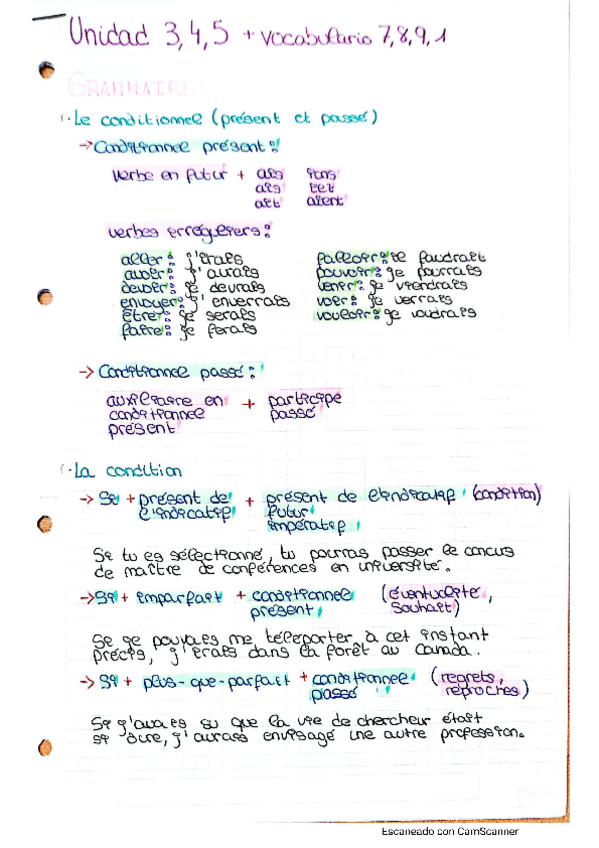 Unidad 3,4,5 + vocabulario 7,8,9,1
GRAMMAIRE:
1. Le conditionnel (présent et passé)
→ Conditionnel présent:
verbe en futur + ais ions
ais iez
ait aient
verbes irréguliers:
aller: j'irais falloir: il faudrait
avoir: j'aurais pouvoir: je pourrais
devoir: je devrais venir: je viendrais
envoyer: j'enverrais voir: je verrais
être: je serais vouloir: je voudrais
faire: je ferais
→ Conditionnel passé:
auxiliaire en + participe
conditionnel passé
présent
La condition
→ Si + présent de + présent de l'indicatif (condition)
l'indicatif futur
impératif
Si tu es sélectionné, tu pourras passer le concus
de maître de conférences en université.
→ Si + imparfait + conditionnel (éventualité,
présent souhait)
Si je pouvais me téléporter à cet instant
précis, j'irais dans la forêt au Canada.
→ Si + plus-que-parfait + conditionnel (regrets,
passé reproches)
Si j'avais su que la vie de chercheur était
si dure, j'aurais envisagé une autre profession.
Escaneado con CamScanner